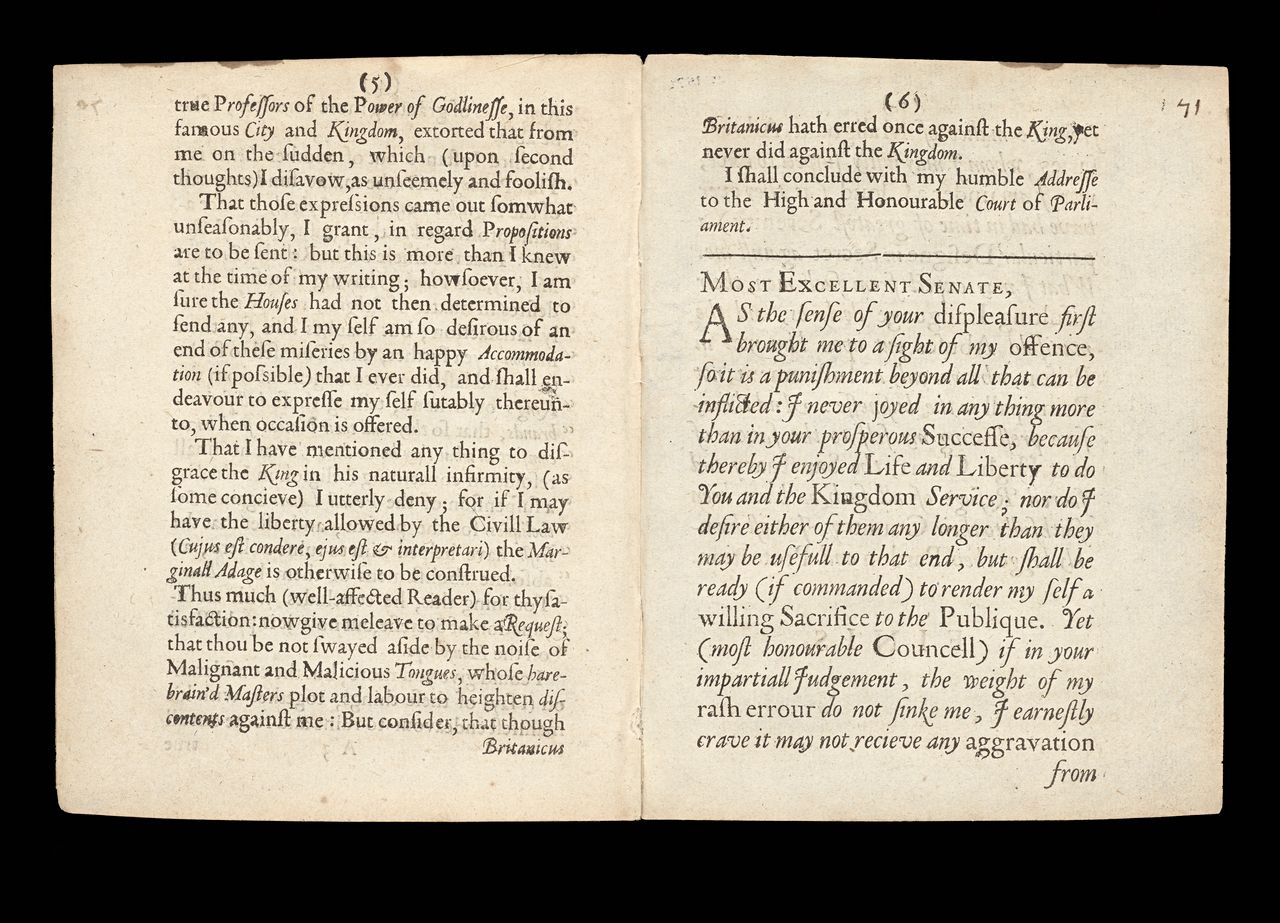 (5)
true Profeſſors of the Power of Godlineſſe, in this
famous City and Kingdom, extorted that from
me on the ſudden, which (upon ſecond
thoughts) I diſavow, as unſeemely and fooliſh.
That thoſe expreſsions came out ſomwhat
unſeaſonably, I grant, in regard Propoſitions
are to be ſent: but this is more than I knew
at the time of my writing; howſoever, I am
ſure the Houſes had not then determined to
ſend any, and I my ſelf am ſo deſirous of an
end of theſe miſeries by an happy Accommoda-
tion (if poſsible) that I ever did, and ſhall en-
deavour to expreſſe my ſelf ſutably thereun-
to, when occaſion is offered.
That I have mentioned any thing to diſ-
grace the King in his naturall infirmity, (as
ſome concieve) I utterly deny; for if I may
have the liberty allowed by the Civill Law
(Cujus eſt condere, ejus eſt & interpretari) the Mar-
ginall Adage is otherwiſe to be conſtrued.
Thus much (well-affected Reader) for thy ſa-
tisfaction: now give me leave to make a Requeſt;
that thou be not ſwayed aſide by the noiſe of
Malignant and Malicious Tongues, whoſe hare-
brain'd Maſters plot and labour to heighten diſ-
contents againſt me: But conſider, that though
Britanicus
(6)
71
Britanicus hath erred once againſt the King, yet
never did againſt the Kingdom.
I ſhall conclude with my humble Addreſſe
to the High and Honourable Court of Parli-
ament.
MOST EXCELLENT SENATE,
AS the ſenſe of your diſpleaſure firſt
brought me to a ſight of my offence,
ſo it is a puniſhment beyond all that can be
inflicted: I never joyed in any thing more
than in your proſperous Succeſſe, becauſe
thereby I enjoyed Life and Liberty to do
You and the Kingdom Service; nor do I
deſire either of them any longer than they
may be uſefull to that end, but ſhall be
ready (if commanded) to render my ſelf a
willing Sacrifice to the Publique. Yet
(moſt honourable Councell) if in your
impartiall Judgement, the weight of my
raſh errour do not ſinke me, I earneſtly
crave it may not recieve any aggravation
from